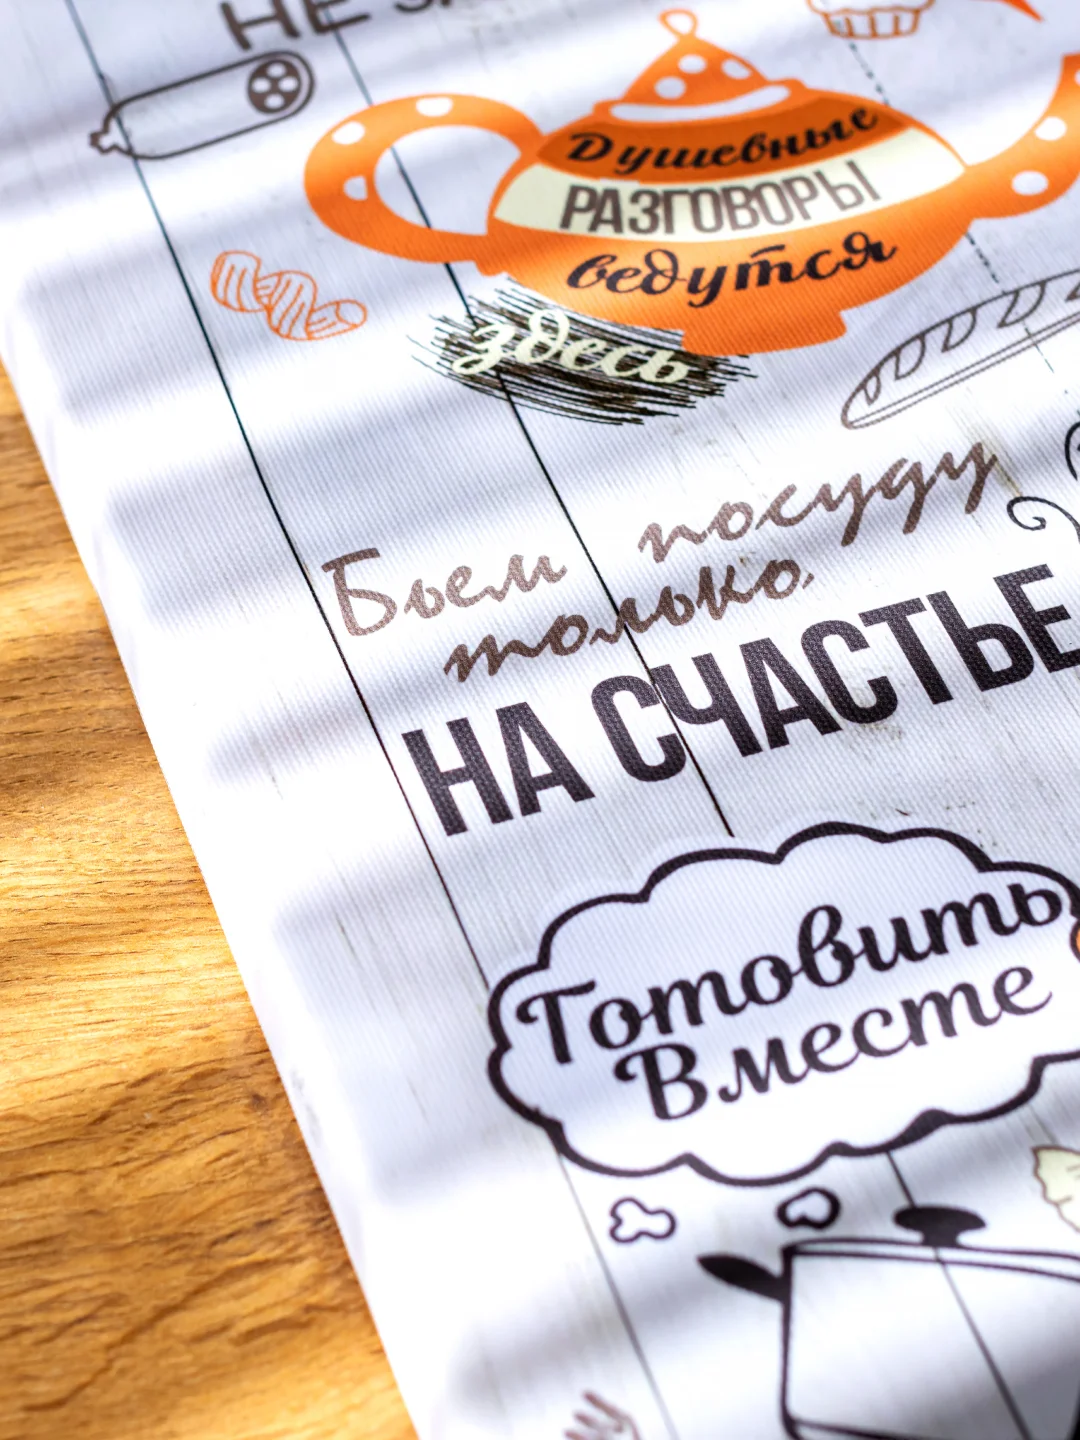 НЕ
Душевные
РАЗГОВОРЫ
ведутся
здесь
Бьем посуду
только
НА СЧАСТЬЕ
Готовить
Вместе